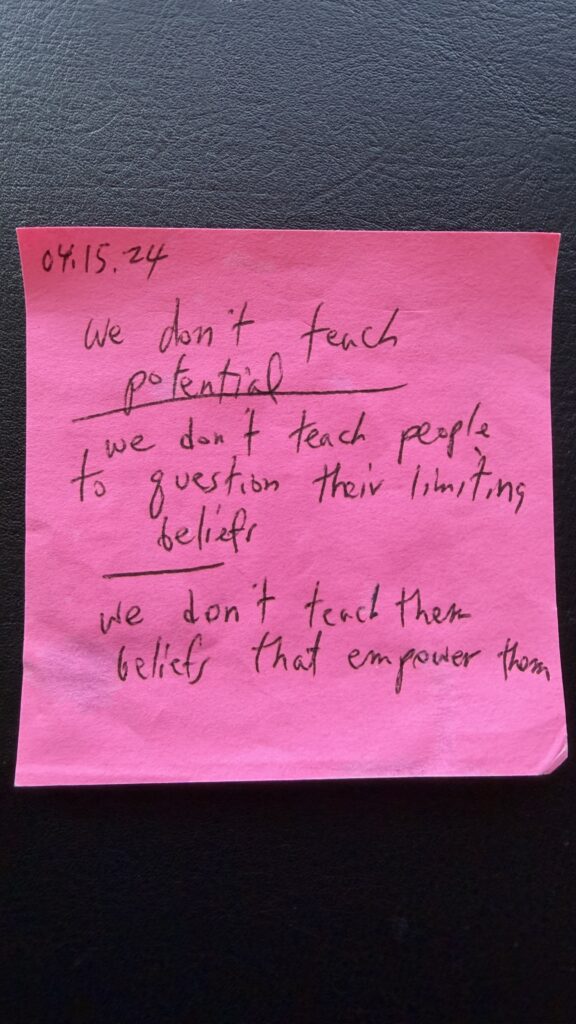 04.15.24
we don't teach
potential
we don't teach people
to question their limiting
beliefs
we don't teach them
beliefs that empower them